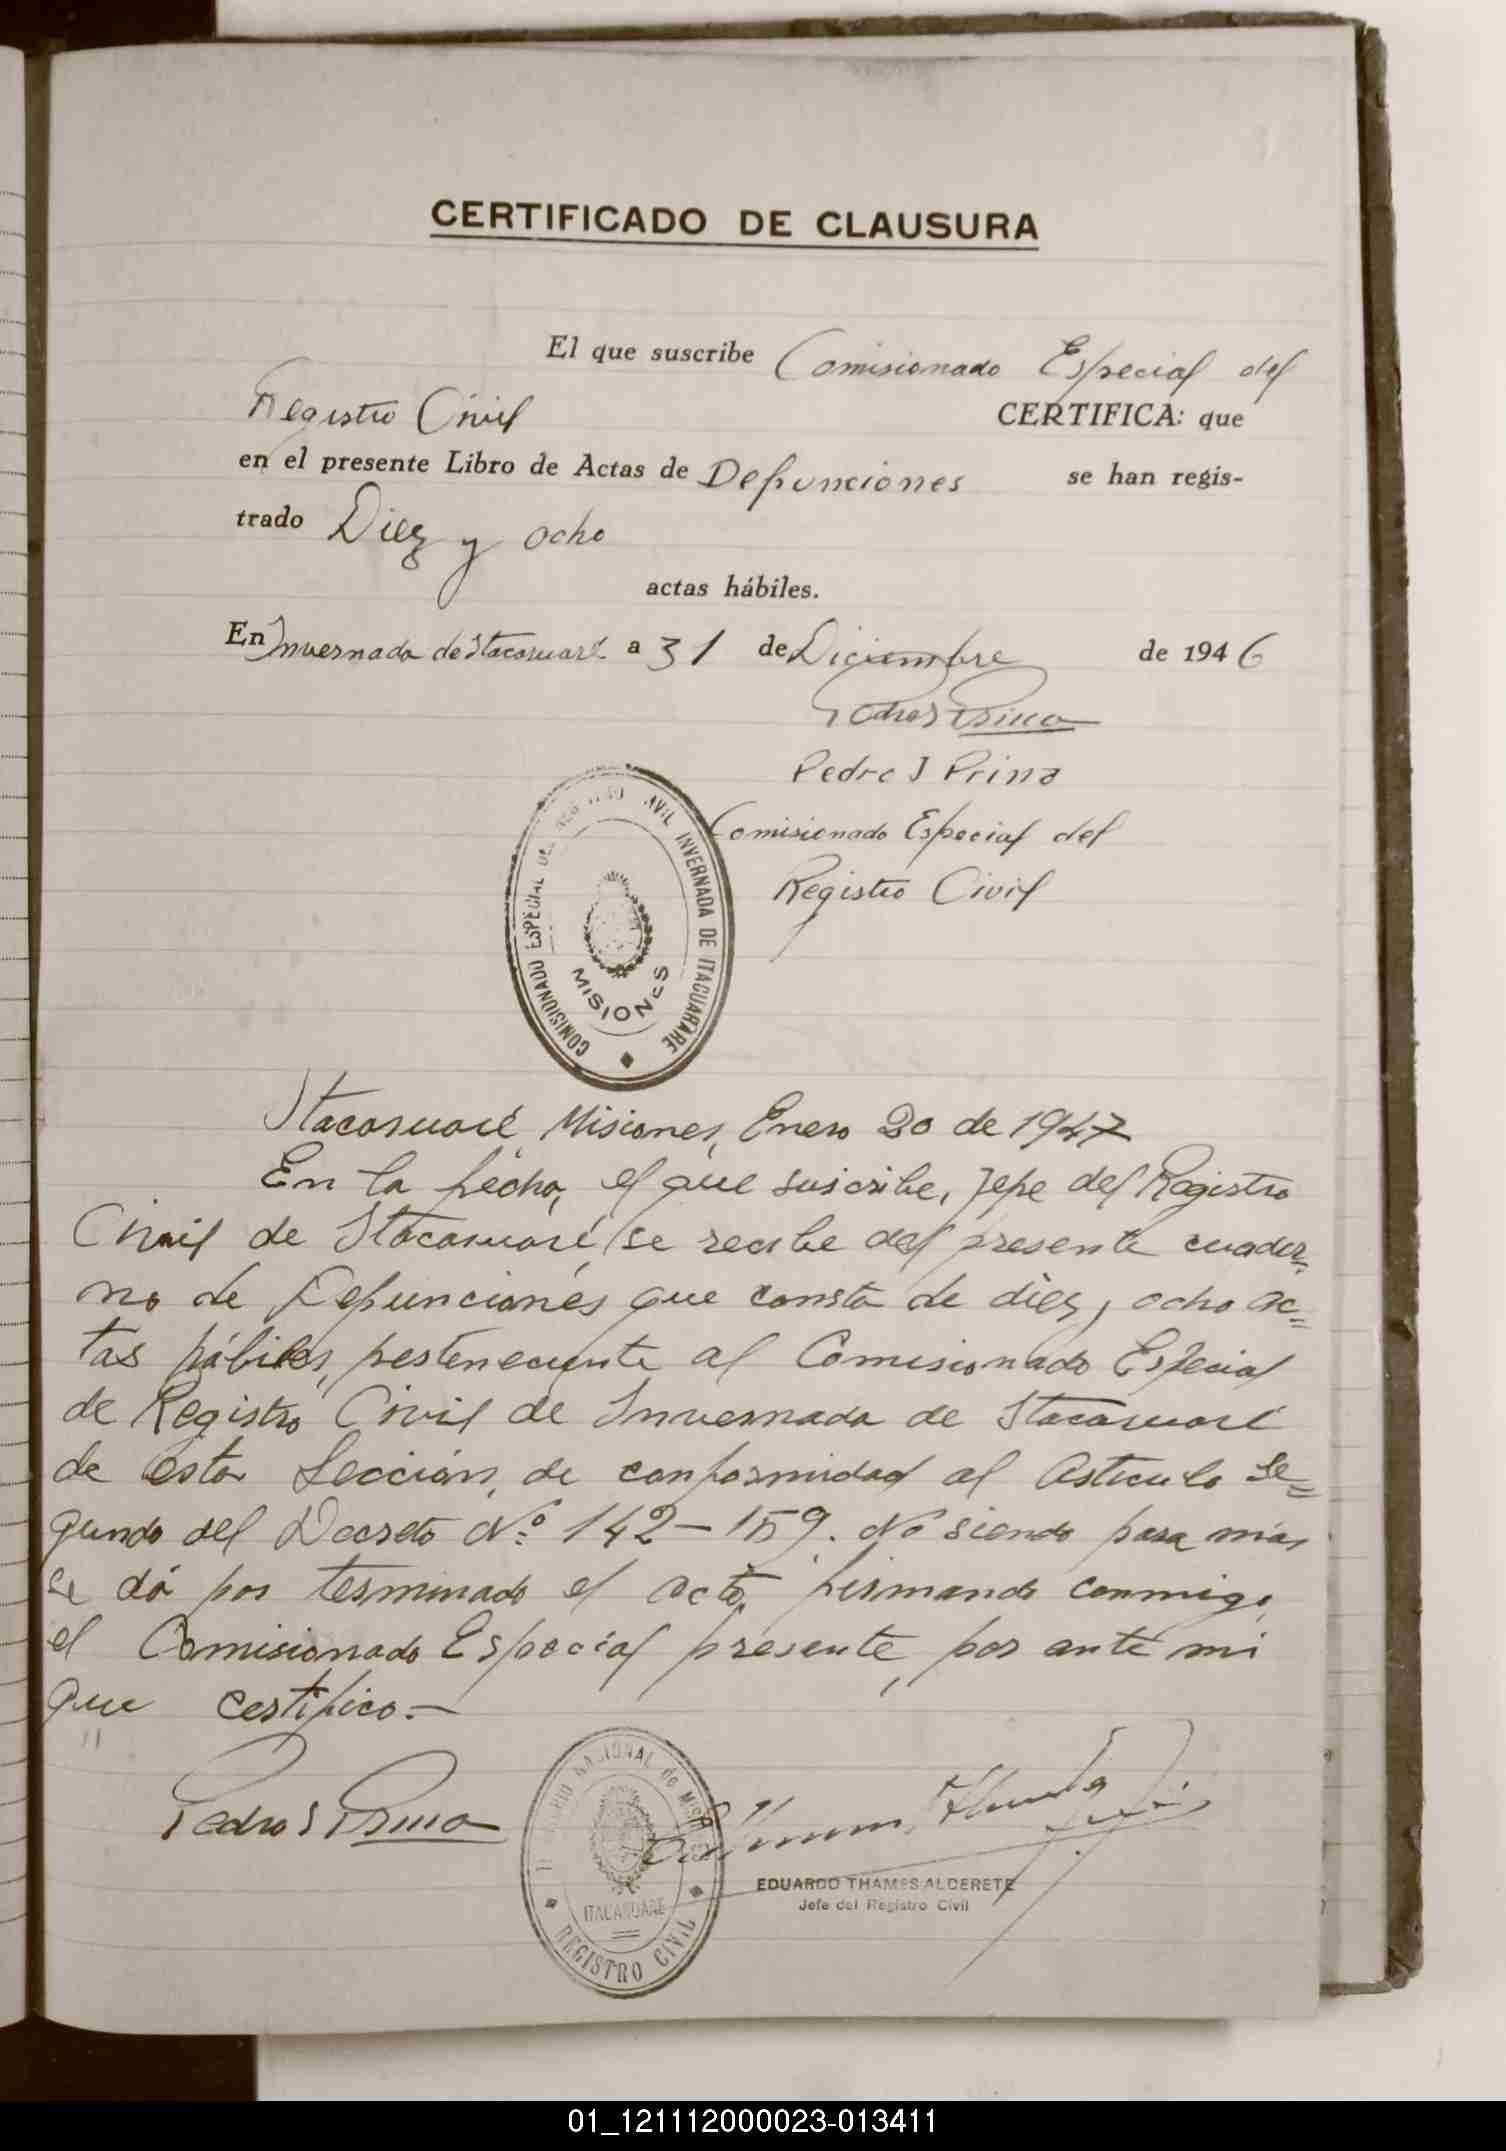 CERTIFICADO DE CLAUSURA
El que suscribe Comisionado Especial del
Registro Civil CERTIFICA: que
en el presente Libro de Actas de Defunciones se han regis-
trado Diez y ocho
actas hábiles.
En Invernada de Itacaruaré a 31 de Diciembre de 1946
Pedro J Prina
Pedro J Prina
Comisionado Especial del
Registro Civil
COMISIONADO ESPECIAL DEL REGISTRO CIVIL INVERNADA DE ITACUARARE
MISIONES
Itacaruaré Misiones, Enero 20 de 1947
En la fecha, el que suscribe, Jefe del Registro
Civil de Itacaruaré, se recibe del presente cuader-
no de Defunciones que consta de diez y ocho ac=
tas hábiles, perteneciente al Comisionado Especial
de Registro Civil de Invernada de Itacaruaré
de esta Sección, de conformidad al Articulo Se=
gundo del Decreto Nº 142-159. No siendo para mas
se dá por terminado el acto, firmando conmigo
el Comisionado Especial presente, por ante mi
que certifico.-
Pedro J Prina
NACIONAL de
ITACARUARE
REGISTRO CIVIL
EDUARDO THAMES ALDERETE
Jefe del Registro Civil
01_121112000023-013411